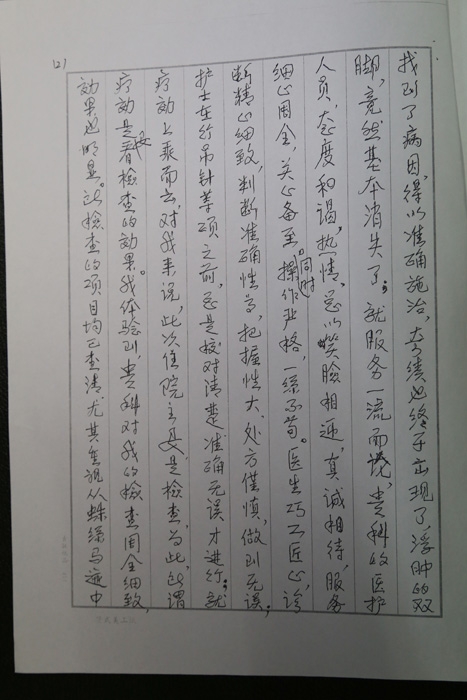 (2)
找到了病因，得以准确施治，奇绩也终于出现了，浮肿的双
脚，竟然基本消失了；就服务一流而说，贵科的医护
人员，态度和谒，热情，总以笑脸相迎，真诚相待，服务
细心周全，关心备至。同时操作严格，一丝不苟。医生巧工匠心，诊
断精心细致，判断准确性高，把握性大、处方谨慎，做到无误；
护士在行吊针等项之前，总是校对清楚准确无误才进行；就
疗效上乘而言，对我来说，此次住院主要是检查，为此，所谓
疗效是要看检查的效果。我体验到贵科对我的检查周全细致，
效果也明显。所检查的项目均已查清尤其重视从蛛丝马迹中